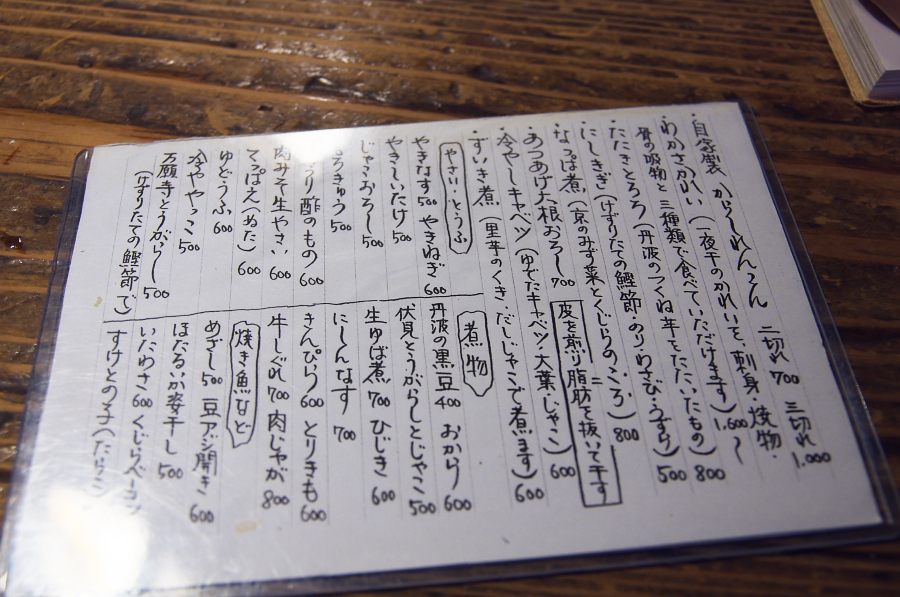 ・自家製 からしれんこん 二切れ 700 三切れ 1,000
・わかさがれい (一夜干のかれいを、刺身・焼物・
骨の吸物と三種類で食べていただけます) 1,600〜
・たたきとろろ (丹波のつくね芋をたたいたもの) 800
・にしきぎ (けずりたての鰹節・のり・わさび・うすけ) 500
・なっぱ煮 (京のみず菜とくじらのころ) 800
皮を煎り脂肪を抜いて干す
・あつあげ大根おろし 700
・冷やしキャベツ (ゆでたキャベツ・大葉・じゃこ) 600
・ずいき煮 (里芋のくき・だしじゃこで煮ます) 600
やさい・とうふ
やきなす 500 やきねぎ 600
やきしいたけ 500
じゃこおろし 500
もろきゅう 500
酢のもの 600
肉みそ生やさい 600
てっぽえ(ぬた) 600
ゆどうふ 600
冷ややっこ 500
万願寺とうがらし 500
(けずりたての鰹節で)
煮物
丹波の黒豆 400 おから 600
伏見とうがらしとじゃこ 500
生ゆば煮 700 ひじき 600
にしんなす 700
きんぴら 600 とりきも 600
牛しぐれ 700 肉じゃが 800
焼き魚など
めざし 500 豆アジ開き 600
ほたるいか姿干し 500
いたわさ 600 くじらベーコン
すけとの子(たらこ)